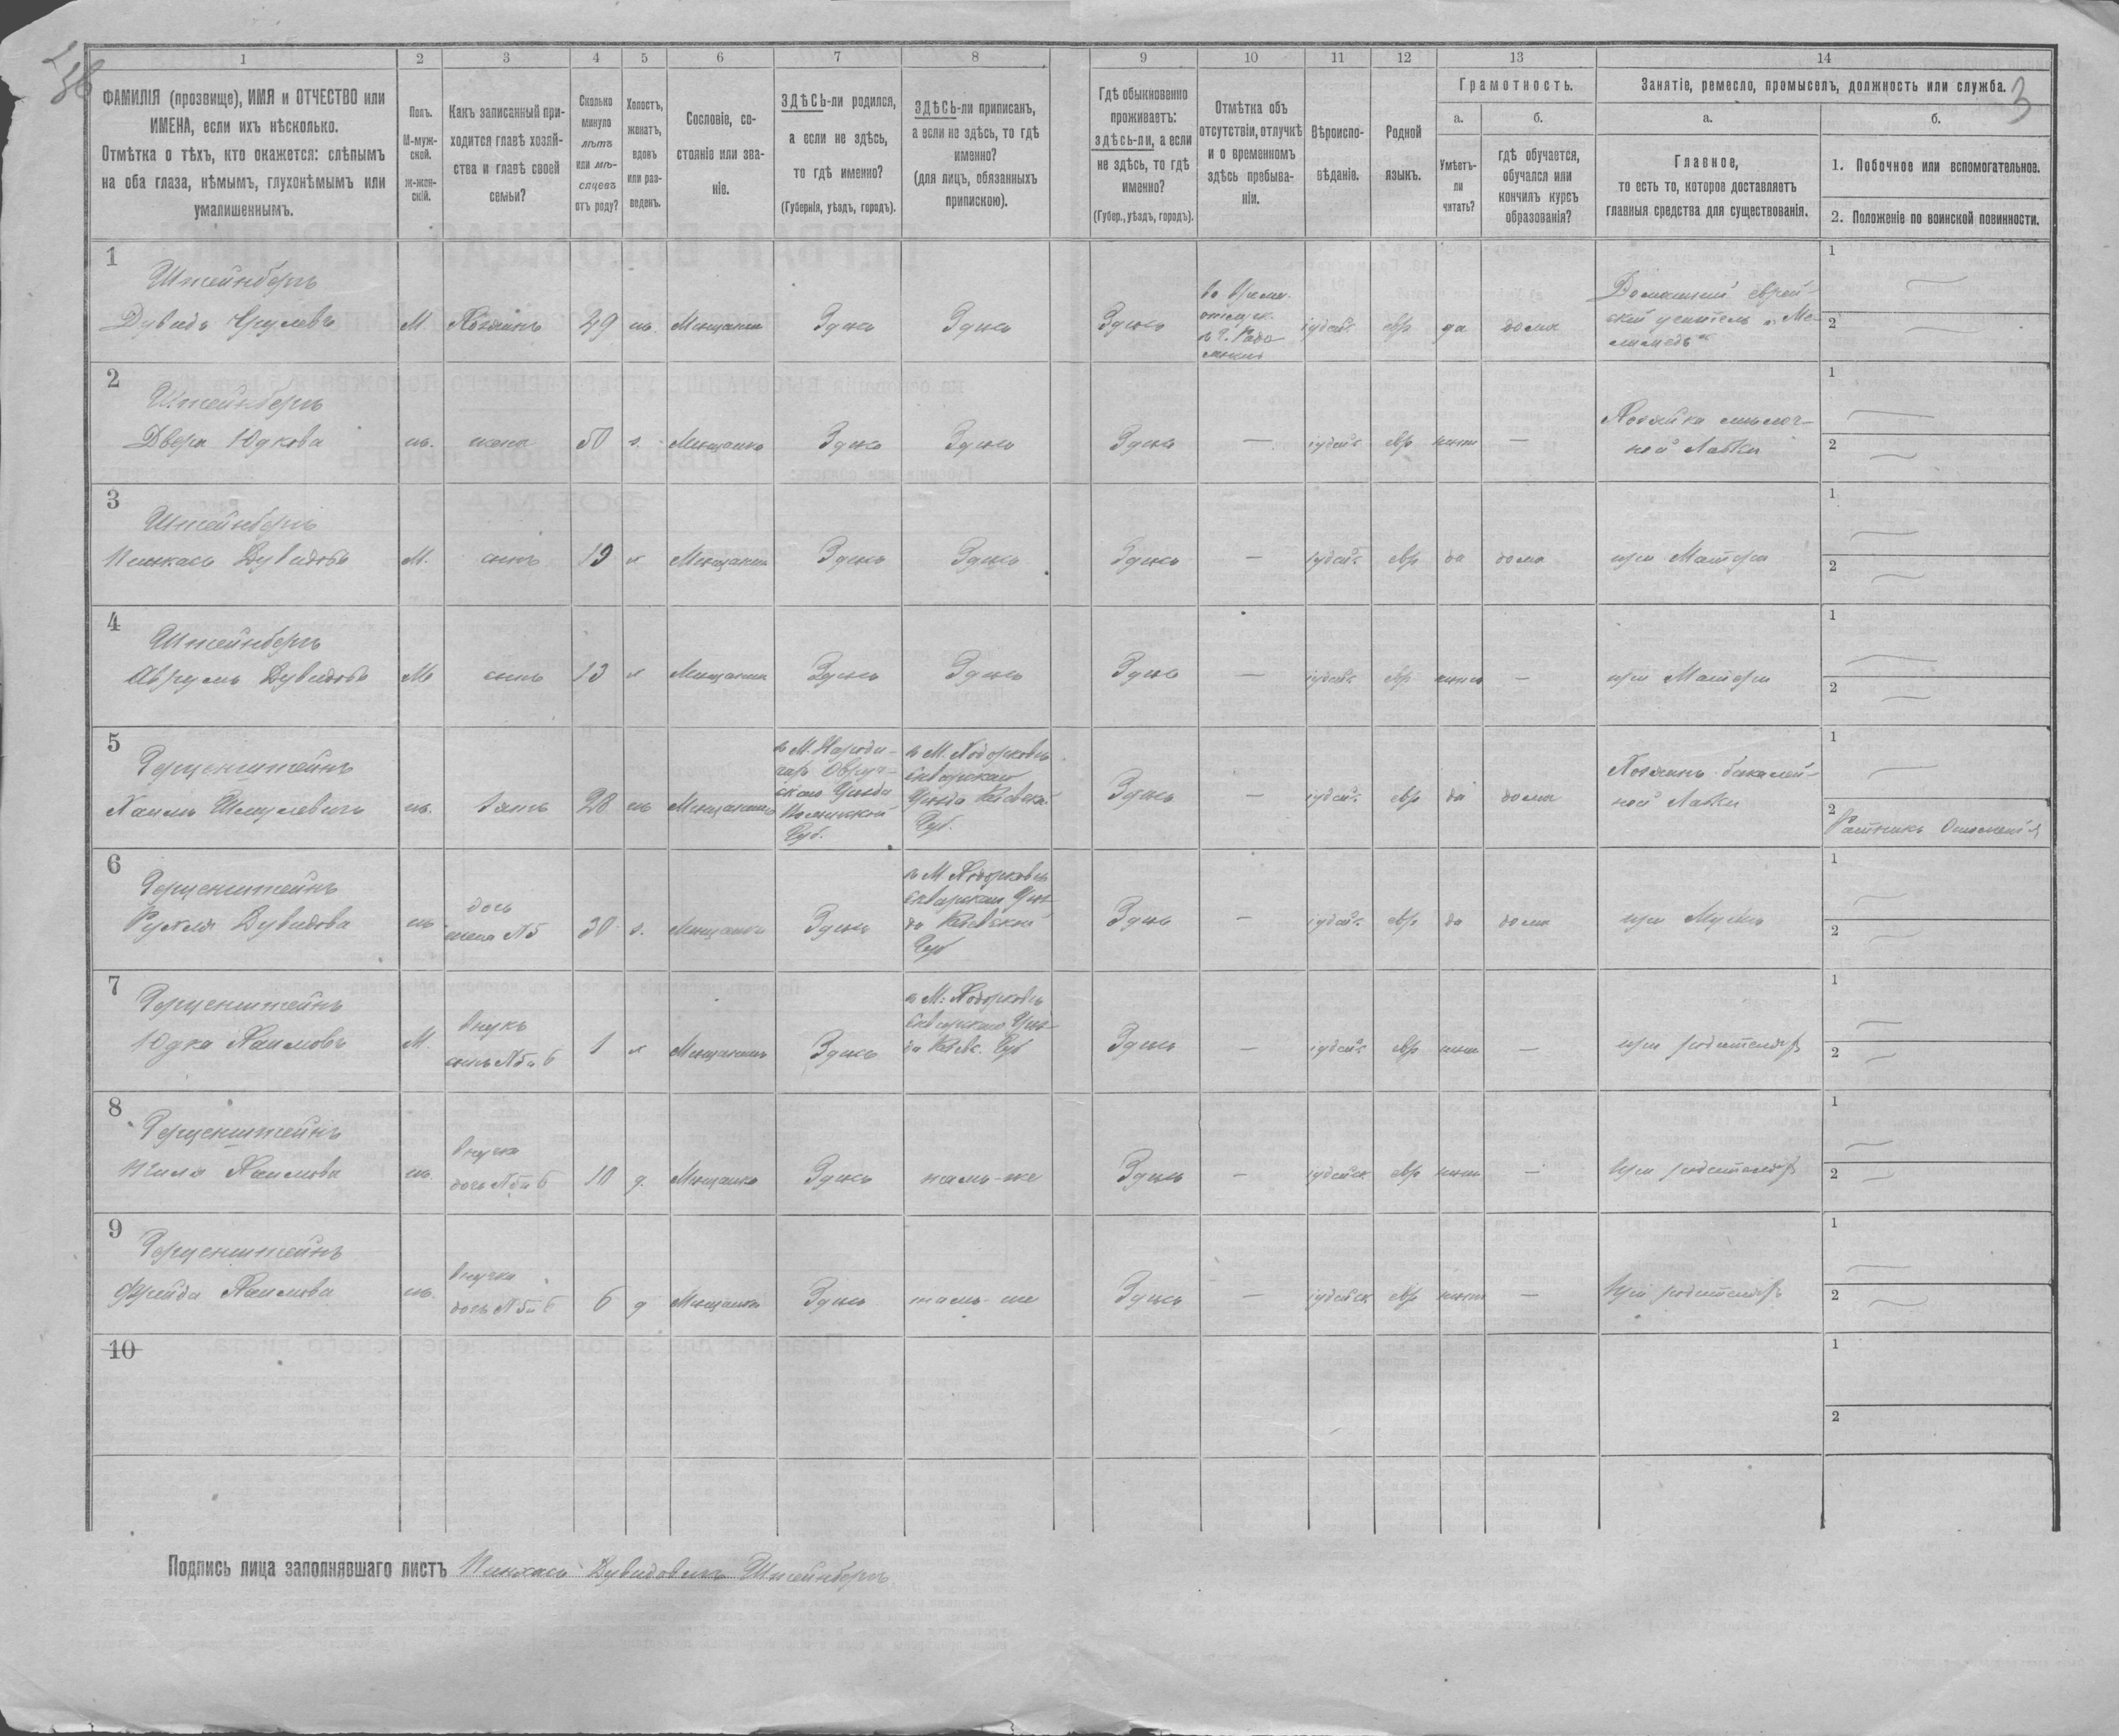 156
3
1 2 3 4 5 6 7 8 9 10 11 12 13 14
ФАМИЛІЯ (прозвище), ИМЯ и ОТЧЕСТВО или
ИМЕНА, если ихъ нѣсколько.
Отмѣтка о тѣхъ, кто окажется: слѣпымъ
на оба глаза, нѣмымъ, глухонѣмымъ или
умалишеннымъ.
Полъ.
М-муж-
ской.
Ж-жен-
скій.
Какъ записанный при-
ходится главѣ хозяй-
ства и главѣ своей
семьи?
Сколько
минуло
лѣтъ
или мѣ-
сяцевъ
отъ роду?
Холостъ,
женатъ,
вдовъ
или раз-
веденъ.
Сословіе, со-
стояніе или зва-
ніе.
ЗДѢСЬ-ли родился,
а если не здѣсь,
то гдѣ именно?
(Губернія, уѣздъ, городъ).
ЗДѢСЬ-ли приписанъ,
а если не здѣсь, то гдѣ
именно?
(для лицъ, обязанныхъ
припискою).
Гдѣ обыкновенно
проживаетъ:
здѣсь-ли, а если
не здѣсь, то гдѣ
именно?
(Губер., уѣздъ, городъ).
Отмѣтка объ
отсутствіи, отлучкѣ
и о временномъ
здѣсь пребыва-
ніи.
Вѣроиспо-
вѣданіе.
Родной
языкъ.
Грамотность.
а.
Умѣетъ-
ли
читать?
б.
гдѣ обучается,
обучался или
кончилъ курсъ
образованія?
Занятіе, ремесло, промыселъ, должность или служба.
а.
Главное,
то есть то, которое доставляетъ
главныя средства для существованія.
б.
1. Побочное или вспомогательное.
2. Положеніе по воинской повинности.
1
Штейнбергъ
Дувидъ Срулевъ М. Хозяинъ 49 ж. Мещанинъ Здесь Здесь Здесь
во врем.
отлучк.
въ г. Радо
мысль
іудейск евр да дома
Домашний еврей-
ский учитель „Ме-
ламедъ“
1
2
2
Штейнбергъ
Двера Юдкова ж. жена 50 з. Мещанка Здесь Здесь Здесь — іудейск евр нѣтъ —
Хозяйка мелоч-
ной Лавки
1
2
3
Штейнбергъ
Пинхасъ Дувидовъ М. сынъ 19 х Мещанин Здесь Здесь Здесь — іудейск евр да дома при Матери
1
2
4
Штейнбергъ
Аврумъ Дувидовъ М сынъ 13 х Мещанин Здесь Здесь Здесь — іудейск евр нѣтъ — при Матери
1
2
5
Герценштейнъ
Хаимъ Шмулевичъ м. зять 28 ж Мещанинъ
въ М. Народи-
чахъ Овруч-
скаго Уѣзда
Волынской
Губ.
въ М. Ходорковъ
Сквирскаго
Уѣзда Кіевской
Губ.
Здесь — іудейск евр да дома
Хозяинъ бакалей-
ной Лавки
1
2
Ратникъ Ополченія
6
Герценштейнъ
Рухля Дувидова ж
дочь
жена №5
30 з. Мещанка Здесь
въ М. Ходорковъ
Сквирскаго Уѣз-
да Кіевской
Губ
Здесь — іудейск евр да дома при Мужѣ
1
2
7
Герценштейнъ
Юдка Хаимовъ М.
внукъ
сынъ №5и6
1 х Мещанинъ Здесь
въ М. Ходорковъ
Сквирскаго Уѣз-
да Кіевс. Губ
Здесь — іудейск евр нѣтъ — при родителяхъ
1
2
8
Герценштейнъ
Хаимова ж.
внучка
дочь №5и6
10 д. Мещанка Здесь тамъ-же Здесь — іудейск евр нѣтъ — при родителяхъ
1
2
9
Герценштейнъ
Фрейда Хаимова ж.
внучка
дочь №5и6
6 д Мещанка Здесь тамъ-же Здесь — іудейск евр нѣтъ — при родителяхъ
1
2
10
1
2
Подпись лица заполнявшаго листъ Пинхасъ Дувидовичъ Штейнбергъ